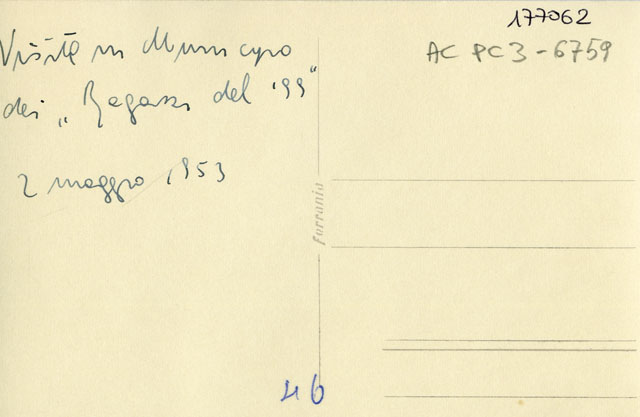 Visita in Municipio
dei "Ragazzi del '99"
2 maggio 1953
177062
AC PC3-6759
ferrania
46